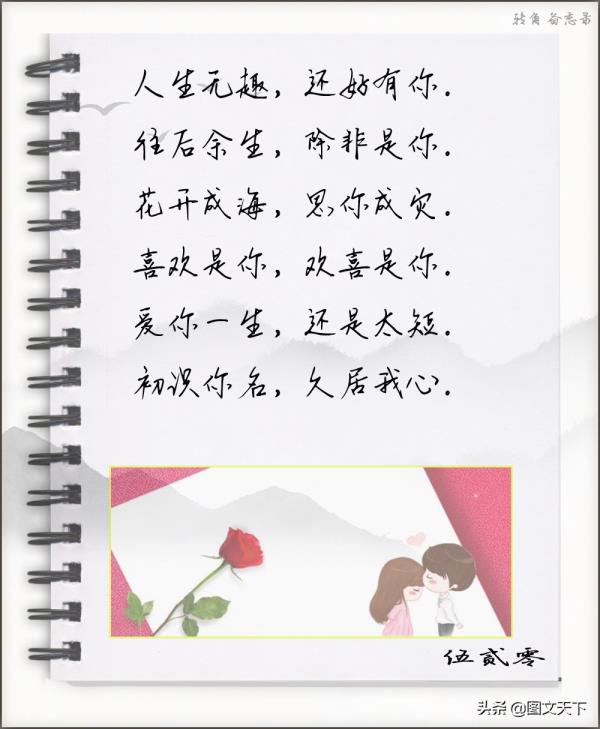 转角 备忘录
人生无趣，还好有你.
往后余生，除非是你.
花开成海，思你成灾.
喜欢是你，欢喜是你.
爱你一生，还是太短.
初识你名，久居我心.
伍贰零
头条 @图文天下